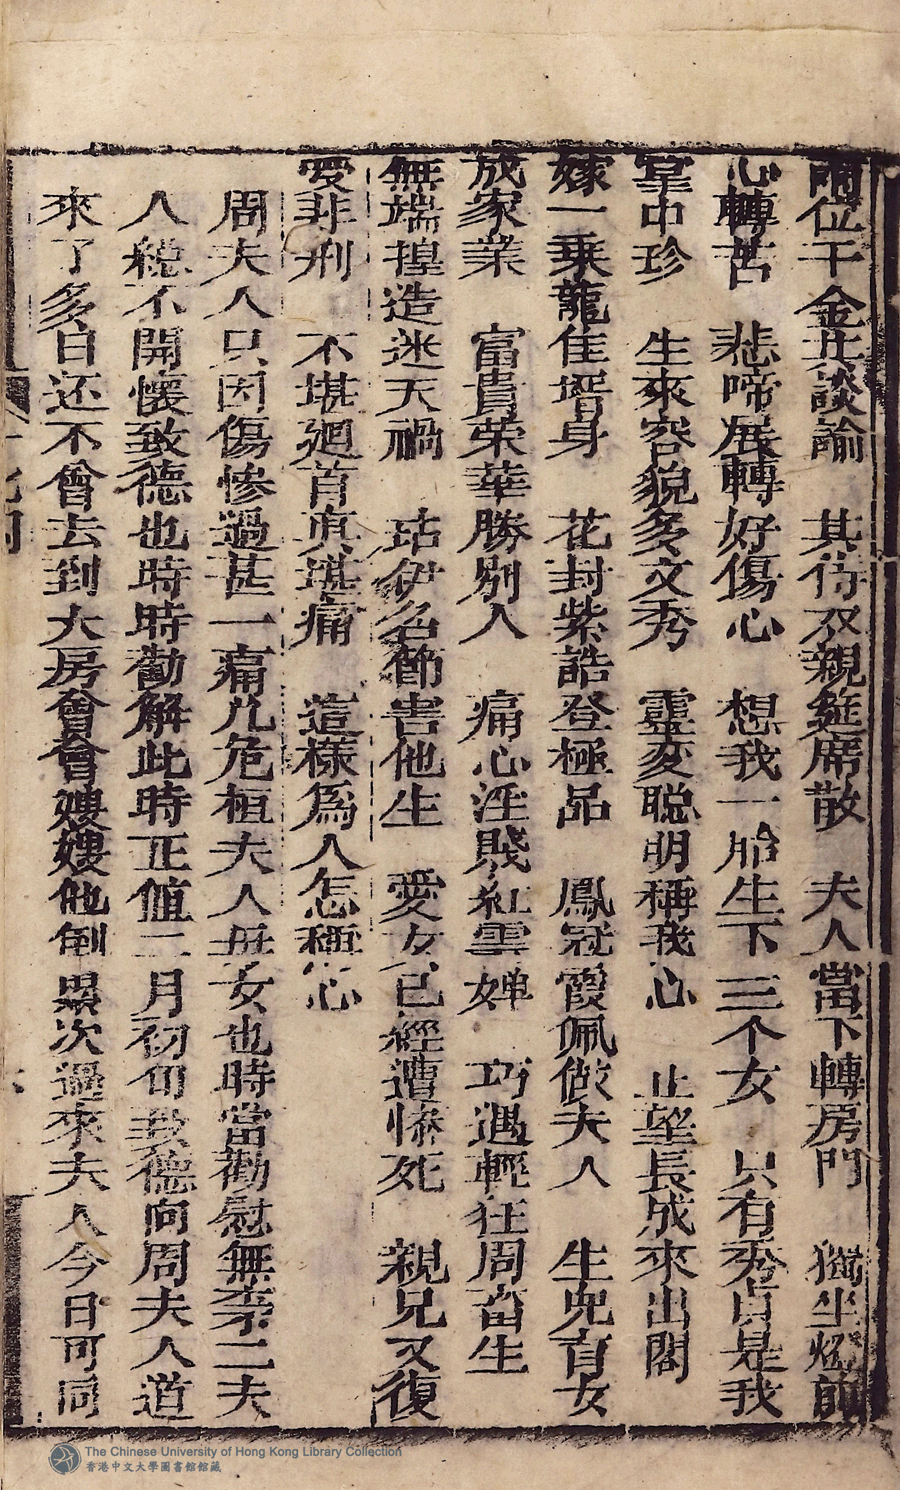 兩位千金共談論　其待双親筵席散　夫人當下轉房門　獨坐燈前
心轉苦　悲啼展轉好傷心　想我一胎生下三个女　只有秀貞是我
掌中珍　生來容貌多文秀　靈变聡明稱我心　止望長成來出閣
嫁一乗龍佳壻身　花封紫誥登極品　鳳冠霞佩做夫人　生児育女
成家業　富貴荣華勝别人　痛心淫賤紅雲婢　巧遇輕狂周畜生
無端揑造迷天禍　玷伊名節害他生　愛女已經遭惨死　親兄又復
受非刑　不堪廻首真堪痛　這樣爲人怎種心
周夫人只因傷惨過甚一痛几危桓夫人母女也時當勸慰無柰二夫
人総不開懷致德也時時勸解此時正值二月初旬致德向周夫人道
來了多日还不曾去到大房會會嫂嫂他倒累次過來夫人今日可同
The Chinese University of Hong Kong Library Collection
香港中文大學圖書館館藏